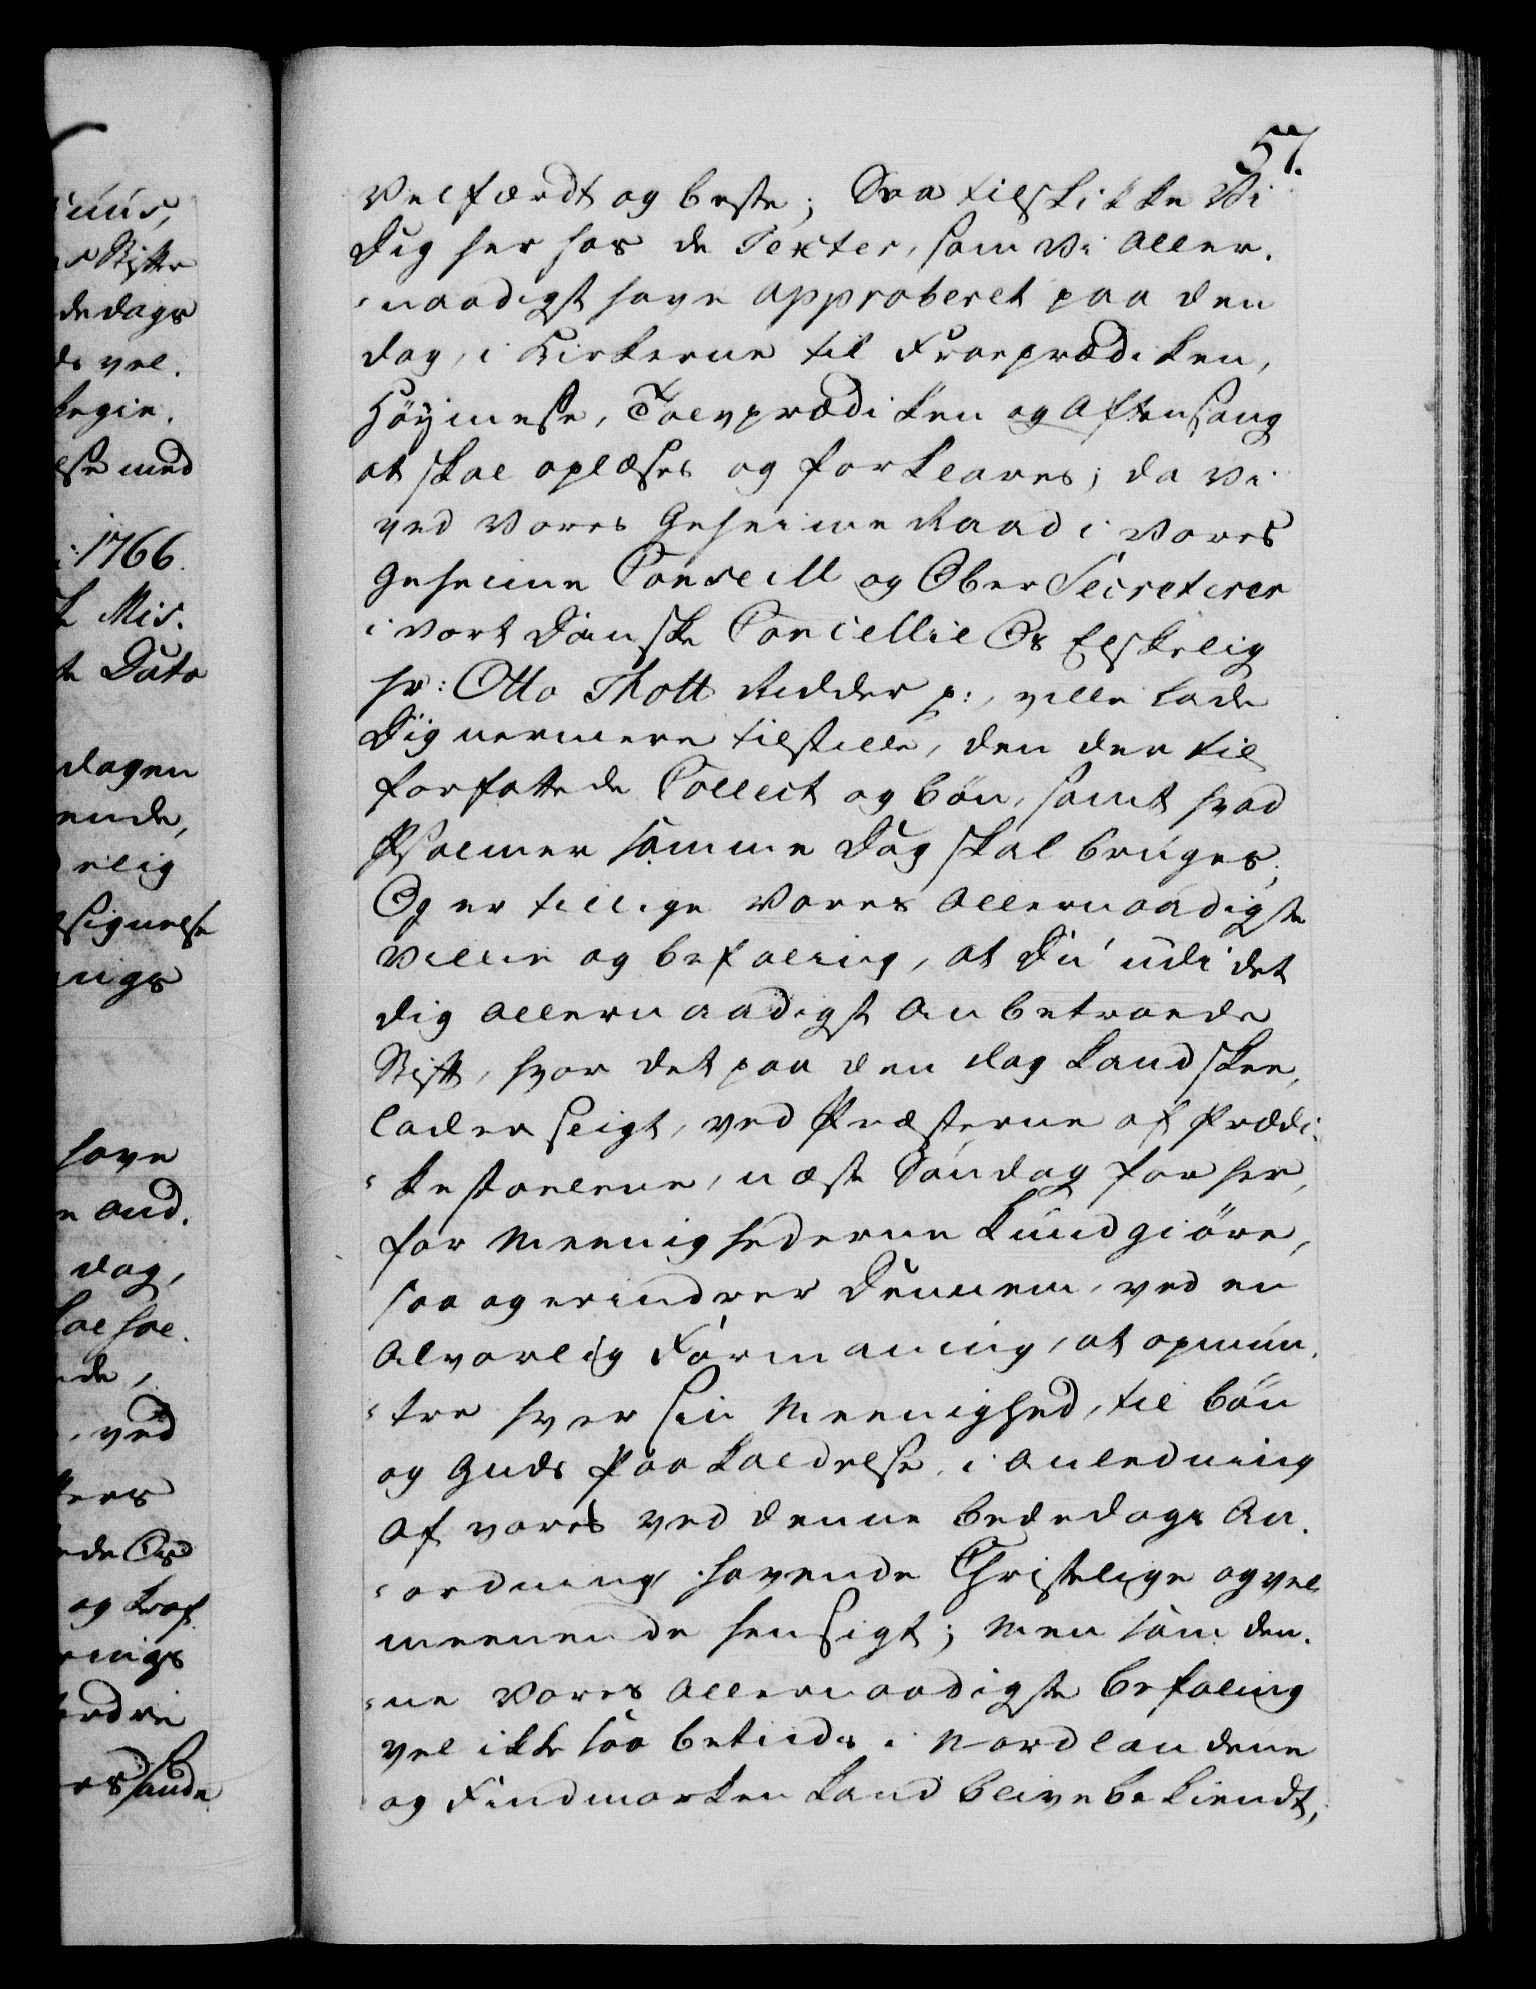 57.
Velfærdt og beste; Saa tilskikke Vi
Dig her hos de Texter, som Vi Aller-
naadigst have approberet paa den
dag, i Kirkerne til Froeprædiken,
Höÿmesse, Tolvprædiken og Aftensang
at skal oplæses og forklares; da Vi
ved Vores Geheime Raad i Vores
Geheime Conseill og Ober Secreterer
i vort Danske Cancellie Os Elskelig
hr: Otto Thott Ridder p:, ville lade
Dig nermere tilstille, den der til
forfattede Collect og bön, samt hvad
Psalmer samme Dag skal bruges;
Og er tillige Vores Allernaadigste
Villie og befaling, at Du udi det
dig Allernaadigst Anbetroede
Stift, hvor det paa den dag kand skee,
lader sligt, ved Præsterne af Prædi-
kestolene, næste Søndag for her,
for Meenighederne kundgiöre,
saa og erindrer Dennem, ved en
Alvorlig Formaning, at opmun-
tre hver sin Meenighed, til bön
og Guds Paakaldelse i Anledning
Af vores ved denne bededags An-
ordning havende Christelige og vel
meenende hensigt; Men som den-
ne Vores Allernaadigste befaling
vel ikke saa betids i Nordlandene
og Findmarken kand blive bekiendt,
uus,
s Stifte
dedags
ds vel.
begie.
lse med
i: 1766.
k Mis.
te Dato
dagen
ende,
elig
signelse
ings
have
e and.
dag,
nde,
, ved
ters
ede Ord
og Kraf
nings